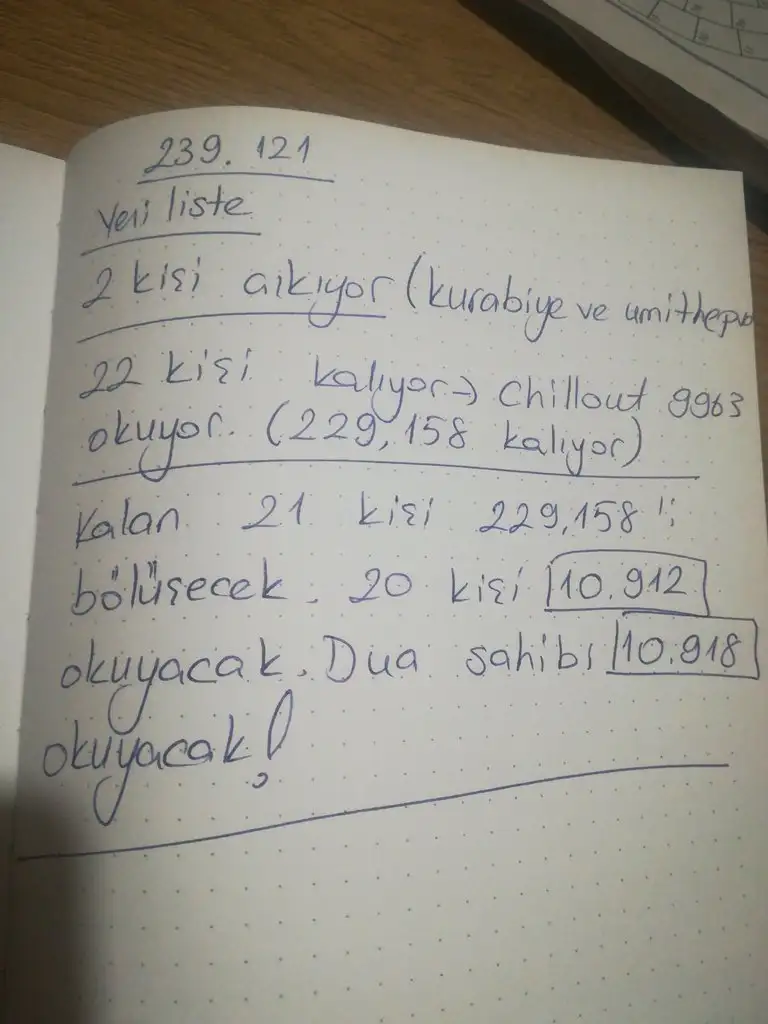 239.121
Yeni liste
2 kişi çıkıyor (kurabiye ve umithepvar
22 kişi kalıyor → Chillout 9963
okuyor. (229,158 kalıyor)
Kalan 21 kişi 229,158'i
bölüşecek. 20 kişi 10.912
okuyacak. Dua sahibi 10.918
okuyacak!